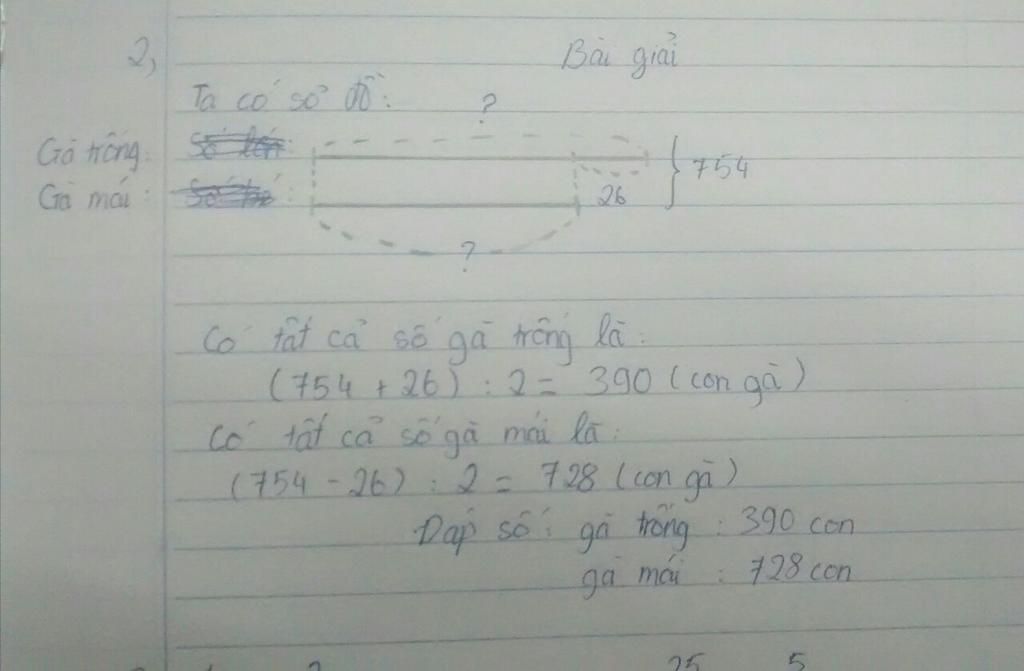 2, Bài giải
Ta có sơ đồ:
?
Gà trống:
Gà mái:
26
} 754
?
Có tất cả số gà trống là:
(754 + 26) : 2 = 390 (con gà)
Có tất cả số gà mái là:
(754 - 26) : 2 = 728 (con gà)
Đáp số: gà trống : 390 con
gà mái : 728 con
25 5